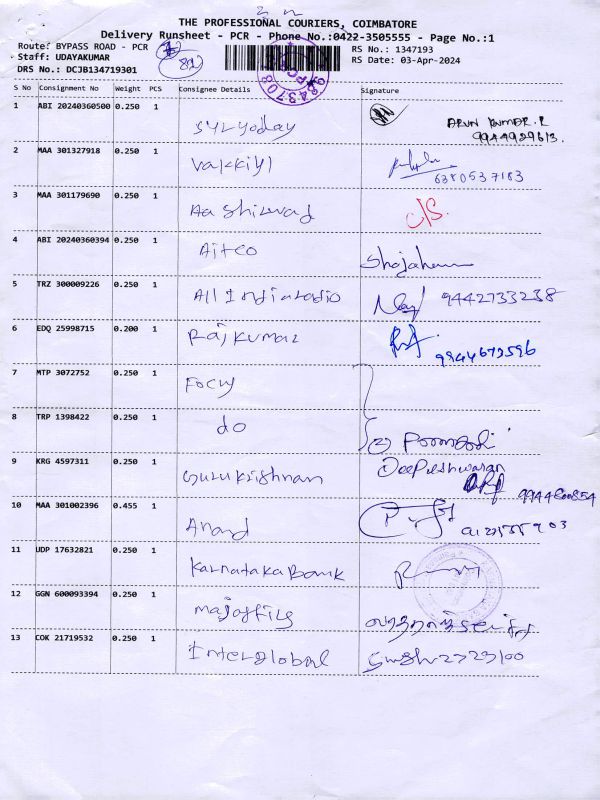 THE PROFESSIONAL COURIERS, COIMBATORE
Delivery Runsheet - PCR - Phone No.:0422-3505555 - Page No.:1
Route: BYPASS ROAD - PCR
RS No.: 1347193
Staff: UDAYAKUMAR
RS Date: 03-Apr-2024
DRS No.: DCJB134719301
S No Consignment No Weight PCS Consignee Details Signature
1 ABI 20240360500 0.250 1 ARUN KUMAR.R
2 MAA 301327918 0.250 1 Vakkiyl 6380537183
3 MAA 301179690 0.250 1 Aashirwad
4 ABI 20240360394 0.250 1 Aitco Shajahan
5 TRZ 300009226 0.250 1 All India radio 9442733238
6 EDQ 25998715 0.200 1 Raj kumar 9944672596
7 MTP 3072752 0.250 1 Focuy
8 TRP 1398422 0.250 1 do
9 KRG 4597311 0.250 1 Gurukrishnan Deepeshwaran
10 MAA 301002396 0.455 1 Anand
11 UDP 17632821 0.250 1 Karnataka Bank
12 GGN 600093394 0.250 1
13 COK 21719532 0.250 1 Interglobal